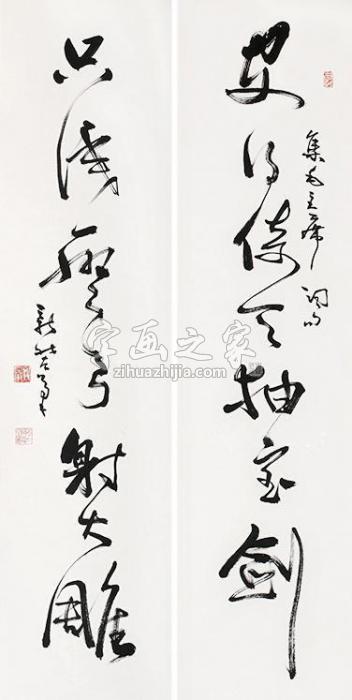 安得倚天抽宝剑
集毛主席词句
只识弯弓射大雕
字画之家
zihuazhijia.com